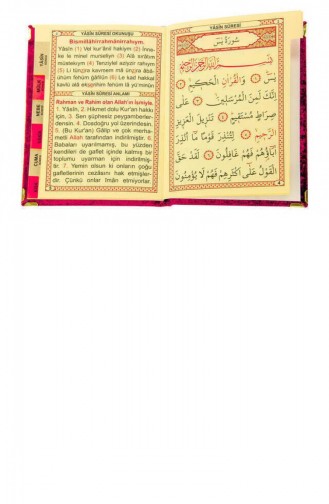 YÂSÎN SÛRESİ OKUNUŞU
Bismillâhirrahmânirrahıym.
Yâsîn (1) Vel kur'ânil hakiym (2) İnne-
ke le minel murseliyn (3) Alâ sırâtım
müstekıym (4) Tenziylel aziyzir rahıym
(5) Li tünzira kavmem mâ ünzira âbâ-
ühüm fehüm ğâfilûn (6) Le kad hakkal
kavlü alâ ekserihim fehüm lâ yü'minûn
YÂSÎN SÛRESİ ANLAMI
Rahman ve Rahim olan Allah'ın İsmiyle.
1. Yâsîn, 2. Hikmet dolu Kur'an hakkı
için, 3. Sen şüphesiz peygamberler-
densin. 4. Dosdoğru yol üzerindesin.
5. (Bu Kur'an) Gâlip ve çok merha-
metli Allah tarafından indirilmiştir. 6.
Babaları uyarılmamış, bu yüzden
kendileri de gaflet içinde kalmış bir
toplumu uyarman için indirilmiş-
tir. 7. Yemin olsun ki onların çoğu
gafletlerinin cezâsını hak etmişler-
dir. Çünkü onlar îmân etmiyorlar.
YÂSÎN
MÜLK
NEBE
CUMA
YÂSÎN SÛRESİ
سُورَةُ يٰسٓ
بِسْمِ اللهِ الرَّحْمٰنِ الرَّحِيمِ
يٰسٓ ١ وَالْقُرْاٰنِ الْحَكِيمِ ٢
اِنَّكَ لَمِنَ الْمُرْسَلِينَ ٣ عَلٰى
صِرَاطٍ مُسْتَقِيمٍ ٤ تَنْزِيلَ الْعَزِيزِ
الرَّحِيمِ ٥ لِتُنْذِرَ قَوْمًا مَا اُنْذِرَ
اٰبَاؤُهُمْ فَهُمْ غَافِلُونَ ٦ لَقَدْ حَقَّ
الْقَوْلُ عَلٰى اَكْثَرِهِمْ فَهُمْ لَا يُؤْمِنُونَ